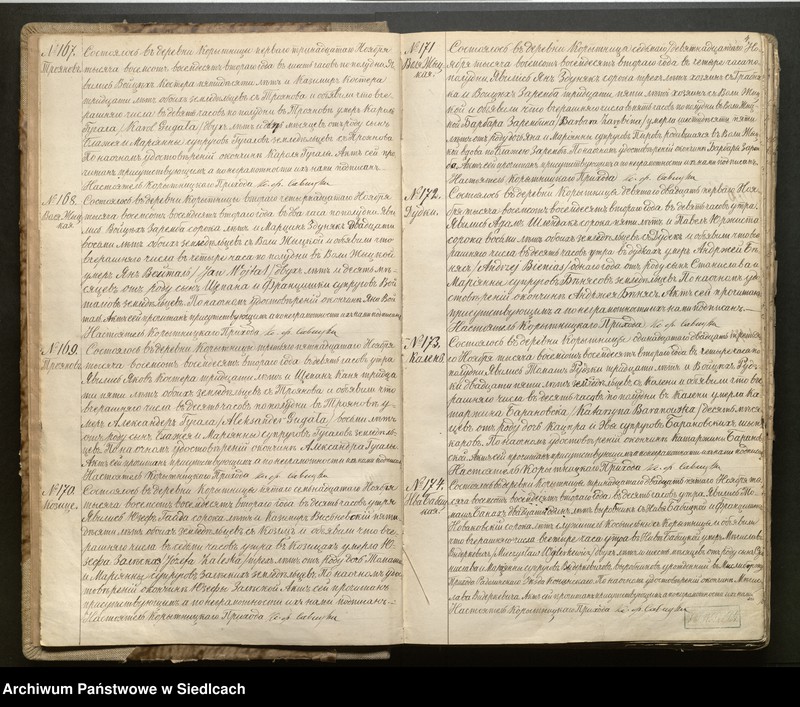 №167.
Трояновъ
Состоялось въ деревни Корытница перваго тринадцатаго Ноября
тысяча восемсотъ восемдесятъ втораго года въ шесть часовъ по полудни. Я-
вились Войцехъ Костера пятидесяти лѣтъ и Казимиръ Костера
тридцати лѣтъ обоихъ земледѣльцевъ съ Троянова и обявили что вче-
рашняго числа въ девять часовъ по полудни въ Трояновѣ умеръ Кароль
Гугала /Karol Gugala/ двухъ лѣтъ и мѣсяцевъ отъ роду сынъ
Блажея и Маріянны супруговъ Гугаловъ земледѣльцевъ съ Троянова.
По наочномъ удостовѣреніи окончины Кароля Гугала. Актъ сей про-
читанъ присутствующимъ а по неграмотности ихъ нами подписанъ.
Настоятель Корытницкаго Прихода
№168.
Воля Жиц-
кая.
Состоялось въ деревни Корытницы втораго четырнадцатаго Ноября
тысяча восемсотъ восемдесятъ втораго года въ два часа по полудни. Яви-
лись Войцехъ Заремба сорока лѣтъ и Марцинъ Здунякъ двадцати
восьми лѣтъ обоихъ земледѣльцевъ съ Воли Жицкой и обявили что
вчерашняго числа въ четыре часа по полудни въ Воли Жицкой
умеръ Янъ Войталь /Jan Wojtal/ двухъ лѣтъ и десять мѣ-
сяцевъ отъ роду сынъ Щепана и Францишки супруговъ Вой-
таловъ земледѣльцевъ. По наочномъ удостовѣреніи окончины Яна Вой-
таль. Актъ сей прочитанъ присутствующимъ а по неграмотности ихъ нами подписанъ
Настоятель Корытницкаго Прихода
№169.
Трояновъ
Состоялось въ деревни Корытницы третьяго пятнадцатаго Ноября
тысяча восемсотъ восемдесятъ втораго года въ девять часовъ утра.
Явились Яковъ Костера тридцати лѣтъ и Щепанъ Каня тридца-
ти пяти лѣтъ обоихъ земледѣльцевъ съ Троянова и обявили что
вчерашняго числа въ десять часовъ по полудни въ Трояновѣ у-
меръ Александеръ Гугала /Aleksander Gugala/ восьми лѣтъ
отъ роду сынъ Блажея и Маріянны супруговъ Гугаловъ земледѣль-
цевъ. По наочномъ удостовѣреніи окончины Александра Гугалы.
Актъ сей прочитанъ присутствующимъ а по неграмотности ихъ нами подписанъ
Настоятель Корытницкаго Прихода
№170.
Козице.
Состоялось въ деревни Корытницы пятаго семнадцатаго Ноября
тысяча восемсотъ восемдесятъ втораго года въ десять часовъ утра
Явились Юзефъ Гайда сорока лѣтъ и Казимиръ Висьневскій пяти-
десяти лѣтъ обоихъ земледѣльцевъ съ Козицъ и обявили что вче-
рашняго числа въ семь часовъ утра въ Козицахъ умерла Ю-
зефа Залеска /Józefa Zaleska/ трехъ лѣтъ отъ роду дочь
и Маріянны супруговъ Залескихъ земледѣльцевъ. По наочномъ удо-
стовѣреніи окончины Юзефы Залеской. Актъ сей прочитанъ
присутствующимъ а по неграмотности ихъ нами подписанъ.
Настоятель Корытницкаго Прихода
№171
Воля Жиц-
кая.
Состоялось въ деревни Корытница седьмаго девятнадцатаго Но-
ября тысяча восемсотъ восемдесятъ втораго года въ четыре часа по
полудни. Явились Янъ Здунякъ сорока трехъ лѣтъ
и Войцехъ Заремба тридцати пяти лѣтъ съ Воли Жиц-
кой и обявили что вчерашняго числа въ пять часовъ по полудни въ Воли Жиц-
кой Барбара Зарембина /Barbara Zarębina/ умерла шестидесяти пяти
лѣтъ отъ роду дочь и Маріянны супруговъ родившаяся въ Воли Жиц-
кой вдова по Блажею Заремба. По наочномъ удостовѣреніи окончины Барбары Зарем-
бы. Актъ сей прочитанъ присутствующимъ а по неграмотности ихъ нами подписанъ.
Настоятель Корытницкаго Прихода
№172.
Дудки.
Состоялось въ деревни Корытница девятаго двадцать перваго Ноя-
бря тысяча восемсотъ восемдесятъ втораго года въ девять часовъ утра.
Явились Адамъ сорока пяти лѣтъ и Павелъ
сорока восьми лѣтъ обоихъ земледѣльцевъ съ Дудекъ и обявили что вче-
рашняго числа въ десять часовъ утра въ Дудкахъ умеръ Андржей Бѣ-
нясъ /Andrzej Bienias/ однаго года отъ роду сынъ Станислава и
Маріянны супруговъ Бѣнясовъ земледѣльцевъ. По наочномъ удо-
стовѣреніи окончины Андржея Бѣняса. Актъ сей прочитанъ
присутствующимъ а по неграмотности нами подписанъ.
Настоятель Корытницкаго Прихода
№173.
Калень
Состоялось въ деревни Корытницы одинадцатаго двадцать третья-
го Ноября тысяча восемсотъ восемдесятъ втораго года въ четыре часа по
полудни. Явились Томашъ Гудзки тридцати лѣтъ и Войцехъ
двадцати пяти лѣтъ земледѣльцевъ съ Калени и обявили что вче-
рашняго числа въ десять часовъ по полудни въ Калени умерла Ка-
таржина Барановска /Katarzyna Baranowska/ десять мѣся-
цевъ отъ роду дочь Кацпра и Эвы супруговъ Барановскихъ
По наочномъ удостовѣреніи окончины Катаржины Баранов-
ской. Актъ сей прочитанъ присутствующимъ а по неграмотности ихъ нами подписанъ.
Настоятель Корытницкаго Прихода
№174.
Нива Бабиц-
кая.
Состоялось въ деревни Корытницы тринадцатаго двадцать пятаго Ноября ты-
сяча восемсотъ восемдесятъ втораго года въ десять часовъ утра. Явились То-
машъ лѣтъ выробникъ съ Нивы Бабицкой и Францишекъ
Новаковскій сорока лѣтъ служитель Костельный съ Корытницы и обявили
что вчерашняго числа въ четыре часа утра въ Нивѣ Бабицкой умеръ Мечиславъ
двухъ лѣтъ и шесть мѣсяцевъ отъ роду сынъ
и супруговъ выробниковъ
По наочномъ удостовѣреніи окончины Мечи-
слава Актъ сей прочитанъ присутствующимъ а по неграмотности нами
Настоятель Корытницкаго Прихода
Archiwum Państwowe w Siedlcach